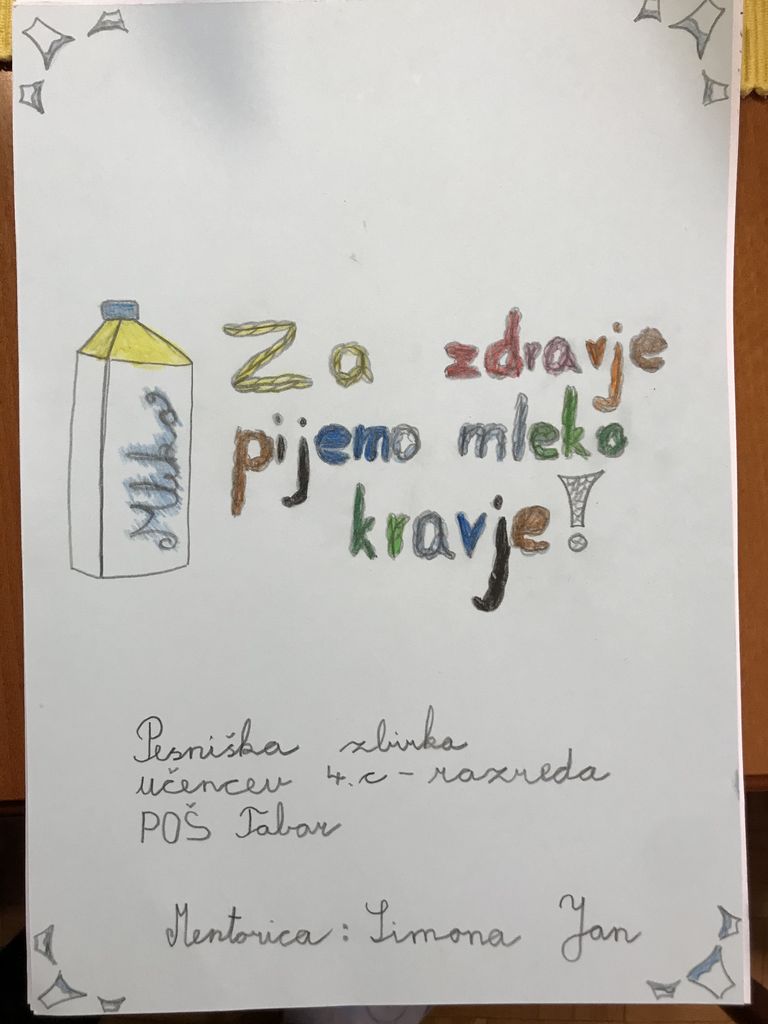 Mleko
Za zdravje
pijemo mleko
kravje!
Pesniška zbirka
učencev 4.c - razreda
POŠ Tabor
Mentorica: Simona Jan